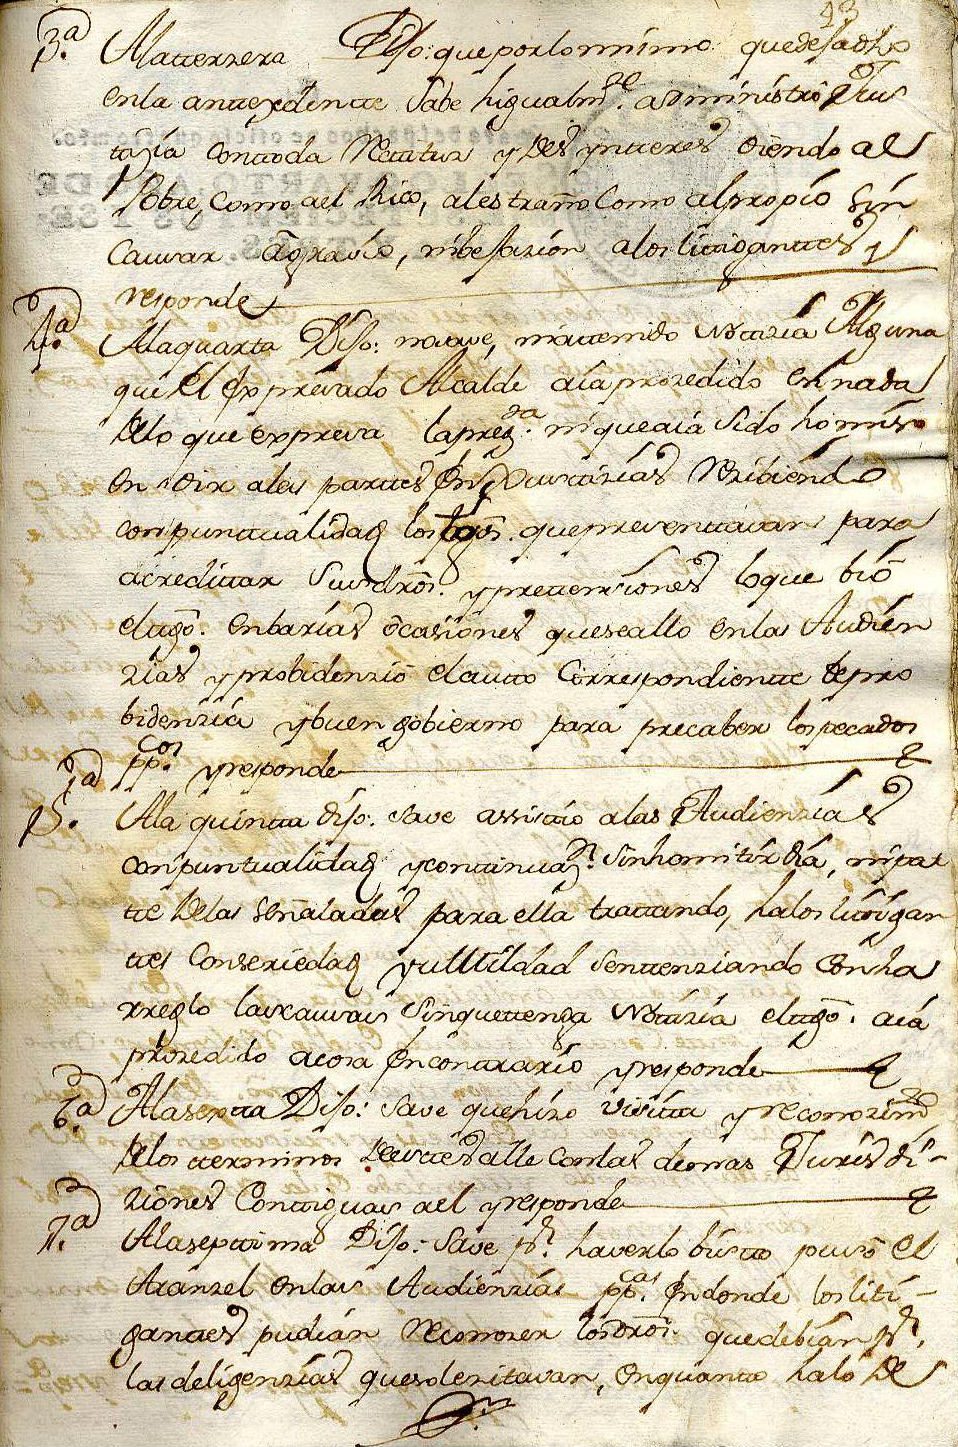 43
3ª Ala tterzera Dijo: que por lo mismo que deja dho
en la anttezedentte Save higualmte. administro Jus
tizia con toda Rectitus y Des ynteres oiendo al
Pobre, como ael Rico, al estraño como al propio sin
Causar agravio, ni bejazion a los littigantes y
responde
4ª Ala quarta Dijo: no save, ni a ttenido nottazia Alguna
que El Expresado Alcalde aia prozedido En nada
delo que expresa la pregta. ni que aia sido homiso
en oir alas parttes En sus Justizias Rezibiendo
con punttualidad los tgos. que presenttavan para
acredittar sus dros. y prettensiones lo que bio
el ttgo. en barias ocasiones que se allo en las Audien
zias y probidenzio el autto Correspondientte de pro
bidenzia y buen gobierno para precaber los pecados
ppcos. y responde
5ª Ala quintta dijo: save assistio a las Audienzias
con puntualidad y conttinuazn. sin homitir dia, ni par
tte de las señaladas para ella trattando, ha los littigan
ttes Con seriedad y uttilidad senttenziando con ha
rreglo las causas sin que ttenga nottizia el ttgo. aia
prozedido acosa en conttrario y responde
6ª Ala sextta Dijo: save que hizo visitta y reconozimto
delos tterminos de estte valle con las demas Jurisdi-
ziones Conttiguas ael y responde
7ª Ala septtima Dijo: save pr. haverlo bistto puso el
Aranzel en las Audienzias ppcas. En donde los liti-
ganttes pudian Reconozer los dros. que debian pr.
las deligenzias que solezitavan, en quantto halo de